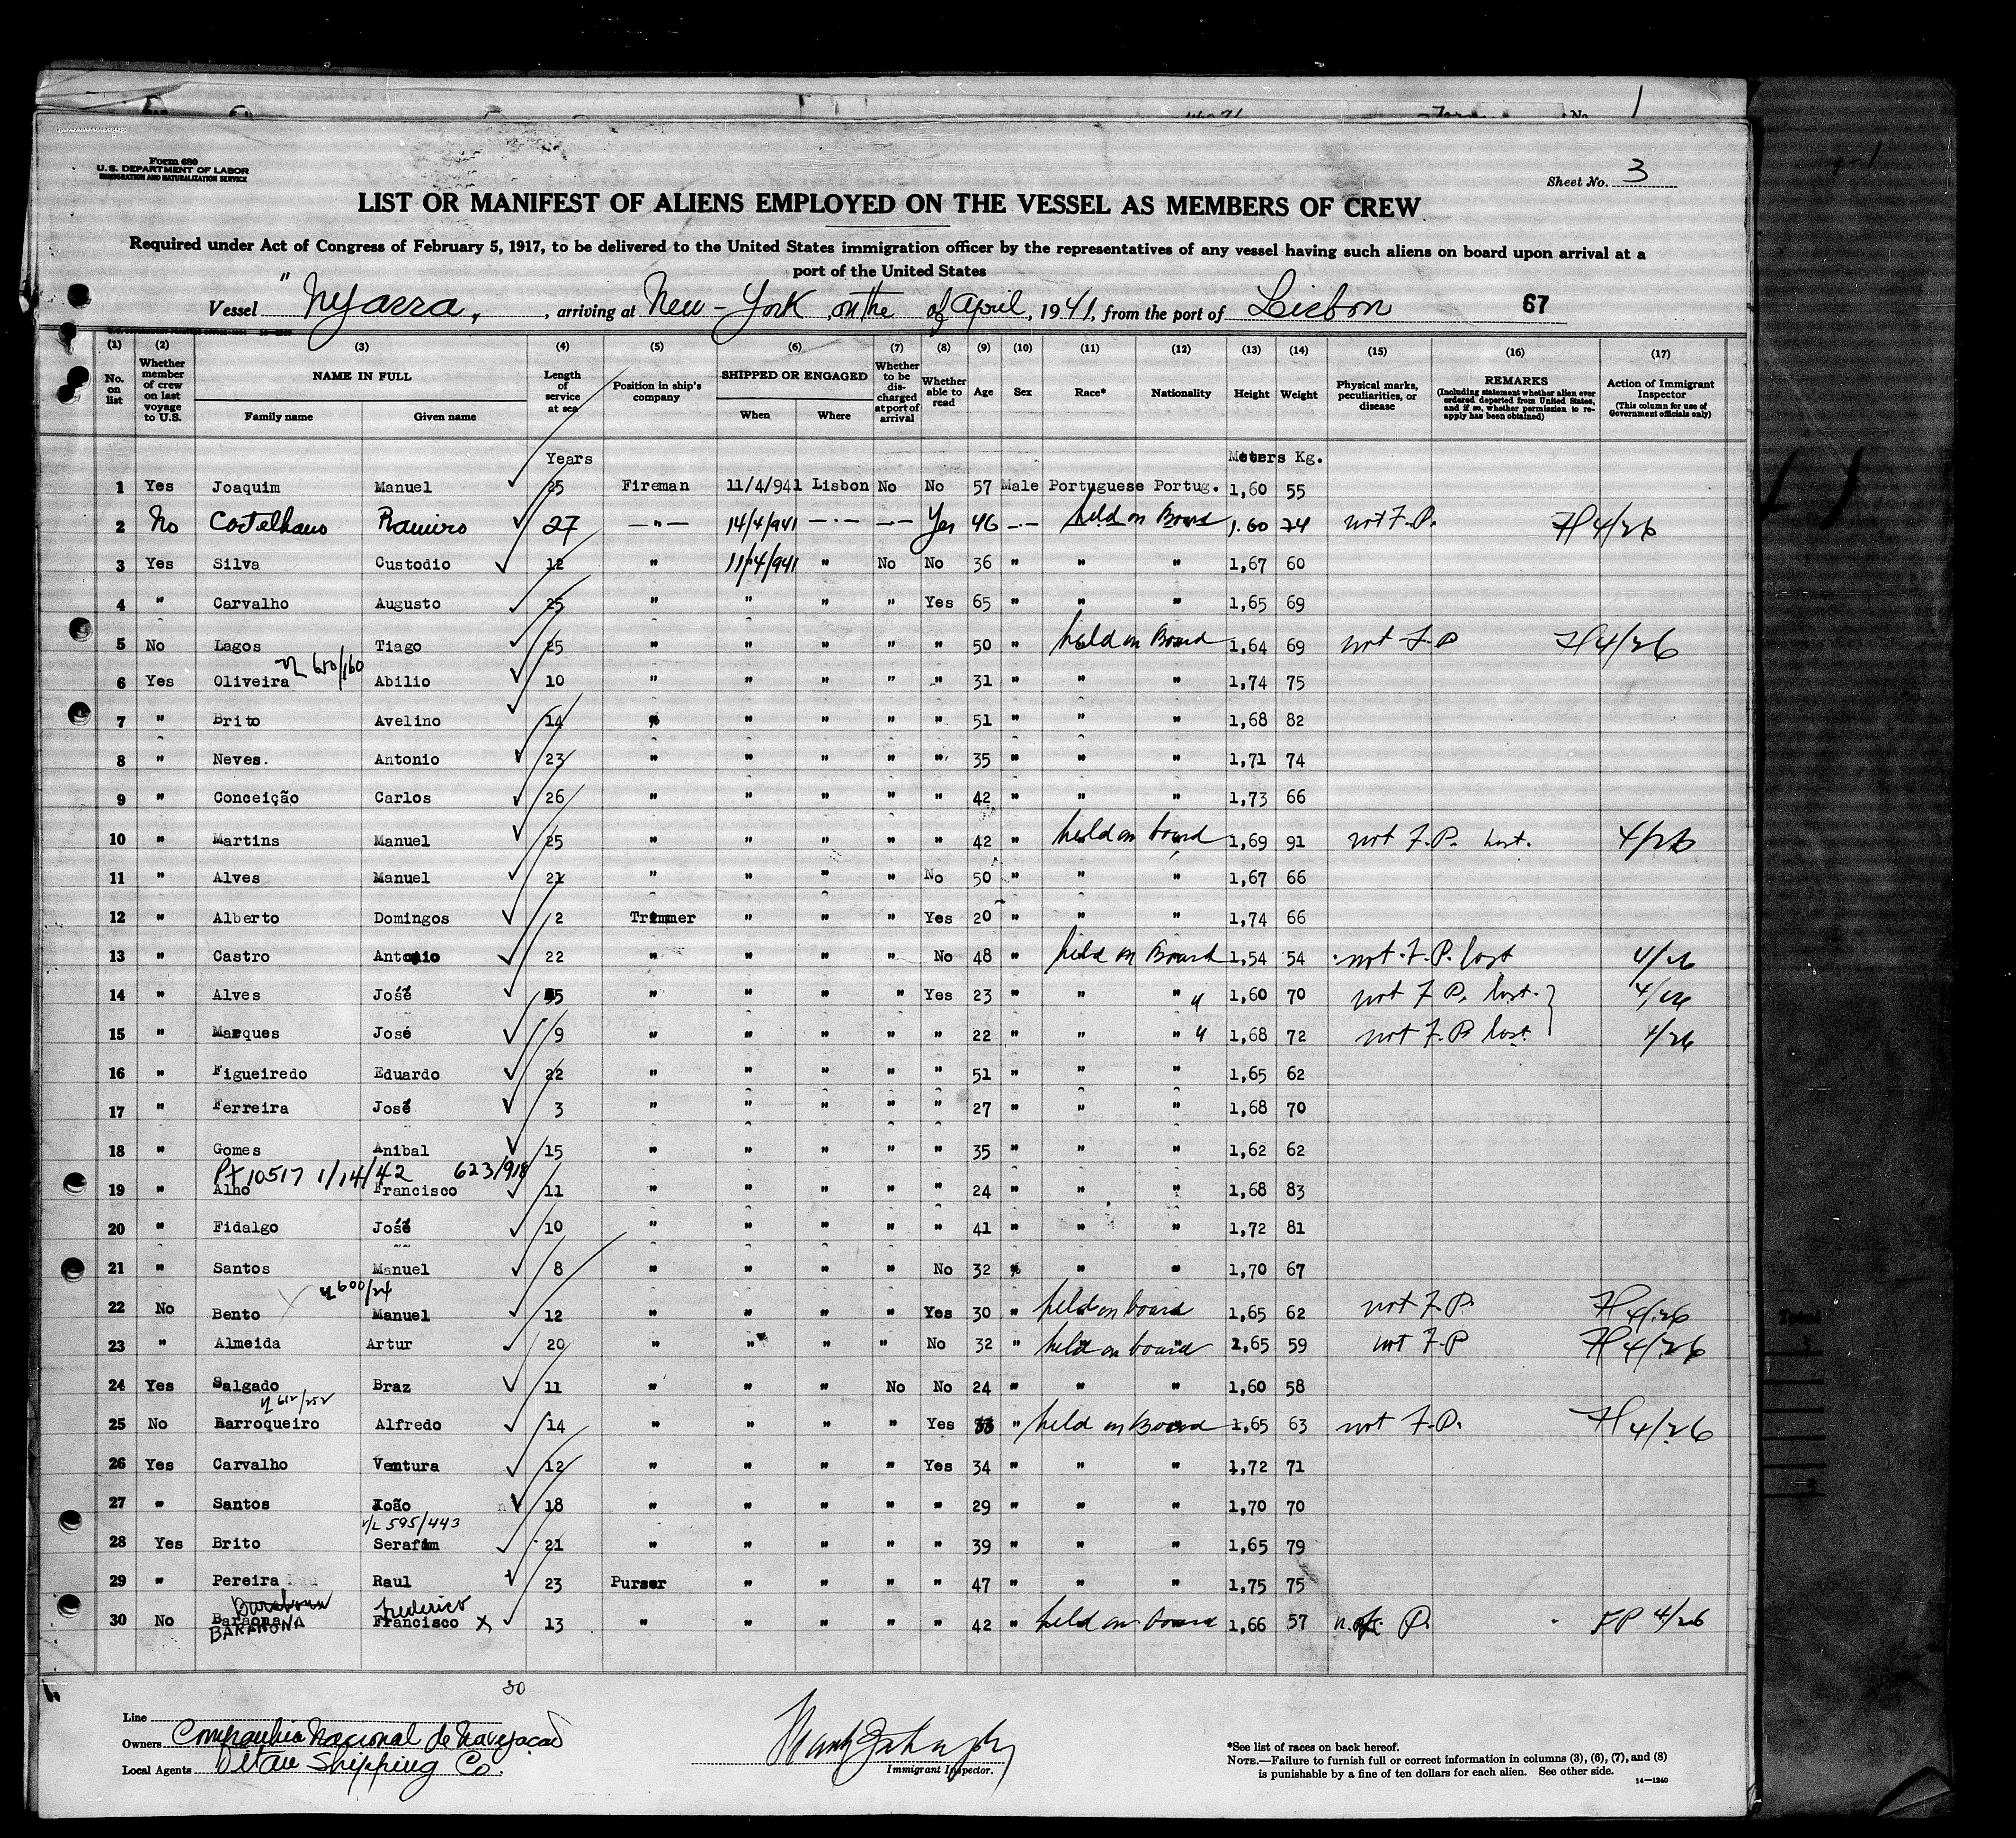 No. 1
Form 680
U.S. DEPARTMENT OF LABOR
IMMIGRATION AND NATURALIZATION SERVICE
Sheet No. 3
LIST OR MANIFEST OF ALIENS EMPLOYED ON THE VESSEL AS MEMBERS OF CREW
Required under Act of Congress of February 5, 1917, to be delivered to the United States immigration officer by the representatives of any vessel having such aliens on board upon arrival at a
port of the United States
Vessel "Nyassa", arriving at New-York, on the of April, 1941, from the port of Lisbon 67
(1) (2) (3) (4) (5) (6) (7) (8) (9) (10) (11) (12) (13) (14) (15) (16) (17)
No. on list
Whether member of crew on last voyage to U.S.
NAME IN FULL
Family name Given name
Length of service at sea
Position in ship's company
SHIPPED OR ENGAGED
When Where
Whether to be discharged at port of arrival
Whether able to read
Age
Sex
Race*
Nationality
Height
Weight
Physical marks, peculiarities, or disease
REMARKS
(Including statement whether alien ever ordered deported from United States, and if so, whether permission to re-apply has been obtained)
Action of Immigrant Inspector
(This column for use of Government officials only)
Years Meters Kg.
1 Yes Joaquim Manuel 25 Fireman 11/4/941 Lisbon No No 57 Male Portuguese Portug. 1,60 55
2 No Ramiro 27 —"— 14/4/941 —"— —"— Yes 46 —"— held on Board 1.60 74 not F.P. H 4/26
3 Yes Silva Custodio 12 " 11/4/941 " No No 36 " " " 1,67 60
4 " Carvalho Augusto 25 " " " " Yes 65 " " " 1,65 69
5 No Lagos Tiago 25 " " " " " 50 " held on Board 1,64 69 not F.P H 4/26
650/160
6 Yes Oliveira Abilio 10 " " " " " 31 " " " 1,74 75
7 " Brito Avelino 14 " " " " " 51 " " " 1,68 82
8 " Neves. Antonio 23 " " " " " 35 " " " 1,71 74
9 " Conceição Carlos 26 " " " " " 42 " " " 1,73 66
10 " Martins Manuel 25 " " " " " 42 " held on board 1,69 91 not F.P. lost. 4/26
11 " Alves Manuel 21 " " " " No 50 " " " 1,67 66
12 " Alberto Domingos 2 Trimmer " " " Yes 20 " " " 1,74 66
13 " Castro Antonio 22 " " " " No 48 " held on Board 1,54 54 not F.P. lost 4/26
14 " Alves José 5 " " " " Yes 23 " " " 1,60 70 not F P. lost. 4/26
15 " Marques José 9 " " " " " 22 " " " 1,68 72 not F.P lost. 4/26
16 " Figueiredo Eduardo 22 " " " " " 51 " " " 1,65 62
17 " Ferreira José 3 " " " " " 27 " " " 1,68 70
18 " Gomes Anibal 15 " " " " " 35 " " " 1,62 62
10517 1/14/42 623/918
19 " Alho Francisco 11 " " " " " 24 " " " 1,68 83
20 " Fidalgo José 10 " " " " " 41 " " " 1,72 81
21 " Santos Manuel 8 " " " " No 32 " " " 1,70 67
600/24
22 No Bento Manuel 12 " " " " Yes 30 " held on board 1,65 62 not F.P. H 4/26
23 " Almeida Artur 20 " " " " No 32 " held on board 1,65 59 not F.P H 4/26
24 Yes Salgado Braz 11 " " " No No 24 " " " 1,60 58
612/252
25 No Barroqueiro Alfredo 14 " " " " Yes 33 " held on Board 1,65 63 not F.P. H 4/26
26 Yes Carvalho Ventura 12 " " " " Yes 34 " " " 1,72 71
27 " Santos João 18 " " " " " 29 " " " 1,70 70
V/L 595/443
28 Yes Brito Serafim 21 " " " " " 39 " " " 1,65 79
29 " Pereira Raul 23 Purser " " " " 47 " " " 1,75 75
Frederico
30 No Baraona Francisco X 13 " " " " " 42 " held on board 1,66 57 P. FP 4/26
BARAHONA
30
Line
Owners Companhia Nacional de Navegação
Local Agents Shipping Co.
Immigrant Inspector.
*See list of races on back hereof.
NOTE.—Failure to furnish full or correct information in columns (3), (6), (7), and (8)
is punishable by a fine of ten dollars for each alien. See other side.
14—1240
Total
3
3